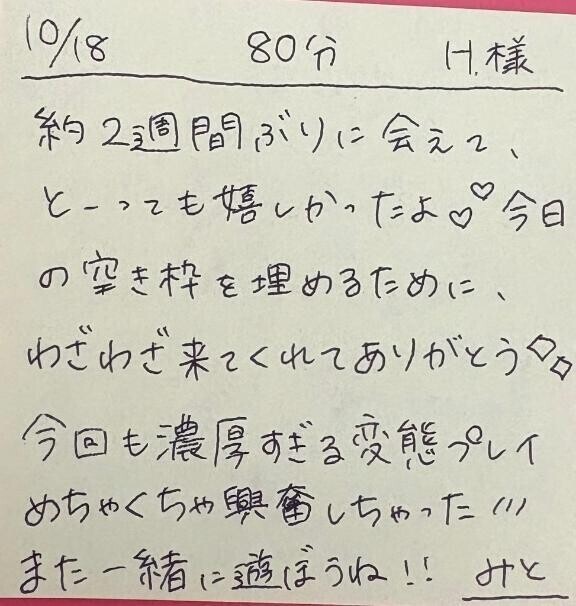 10/18 80分 H.様
約2週間ぶりに会えて、
とーっても嬉しかったよ♡♡今日
の空き枠を埋めるために、
わざわざ来てくれてありがとう◇◇
今回も濃厚すぎる変態プレイ
めちゃくちゃ興奮しちゃった///
また一緒に遊ぼうね!! みと